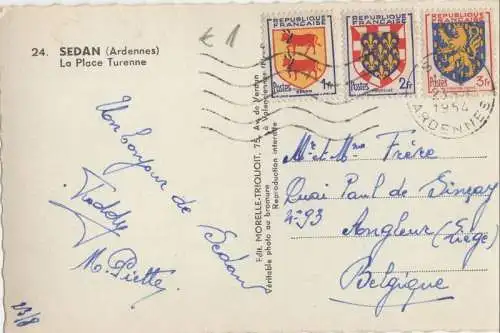 24. SEDAN (Ardennes)
La Place Turenne
€ 1
REPUBLIQUE FRANÇAISE
Postes 1fr
BEARN
REPUBLIQUE FRANÇAISE
Postes 2fr
TOURAINE
REPUBLIQUE FRANÇAISE
Postes 3fr
1954
ARDENNES
Un bonjour de Sedan
Teddy
M. Piette
23/8
Edit. MORELLE-TRIQUOIT, 75, Av. de Verdun
à Valenciennes
Reproduction interdite
Véritable photo au bromure
Mr et Mme Frère
Quai Paul de Sinçay
N° 93
Angleur (Liège)
Belgique